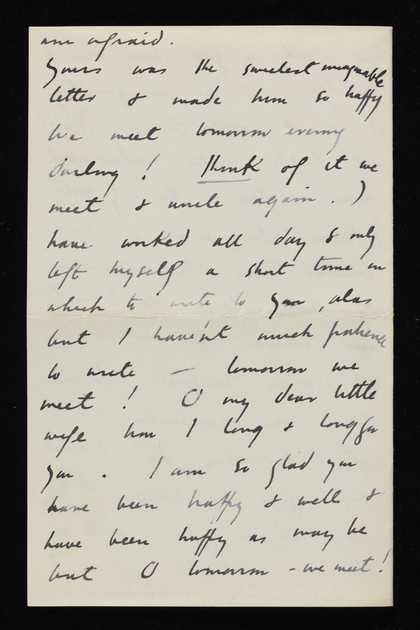 am afraid.
Yours was the sweetest imaginable
letter & made him so happy
We meet tomorrow evening
Darling! Think of it we
meet & unite again. I
have worked all day & only
left myself a short time in
which to write to you, alas
but I haven't much patience
to write — tomorrow we
meet! O my dear little
wife how I long & long for
you. I am so glad you
have been happy & well &
have been happy as may be
but O tomorrow - we meet!